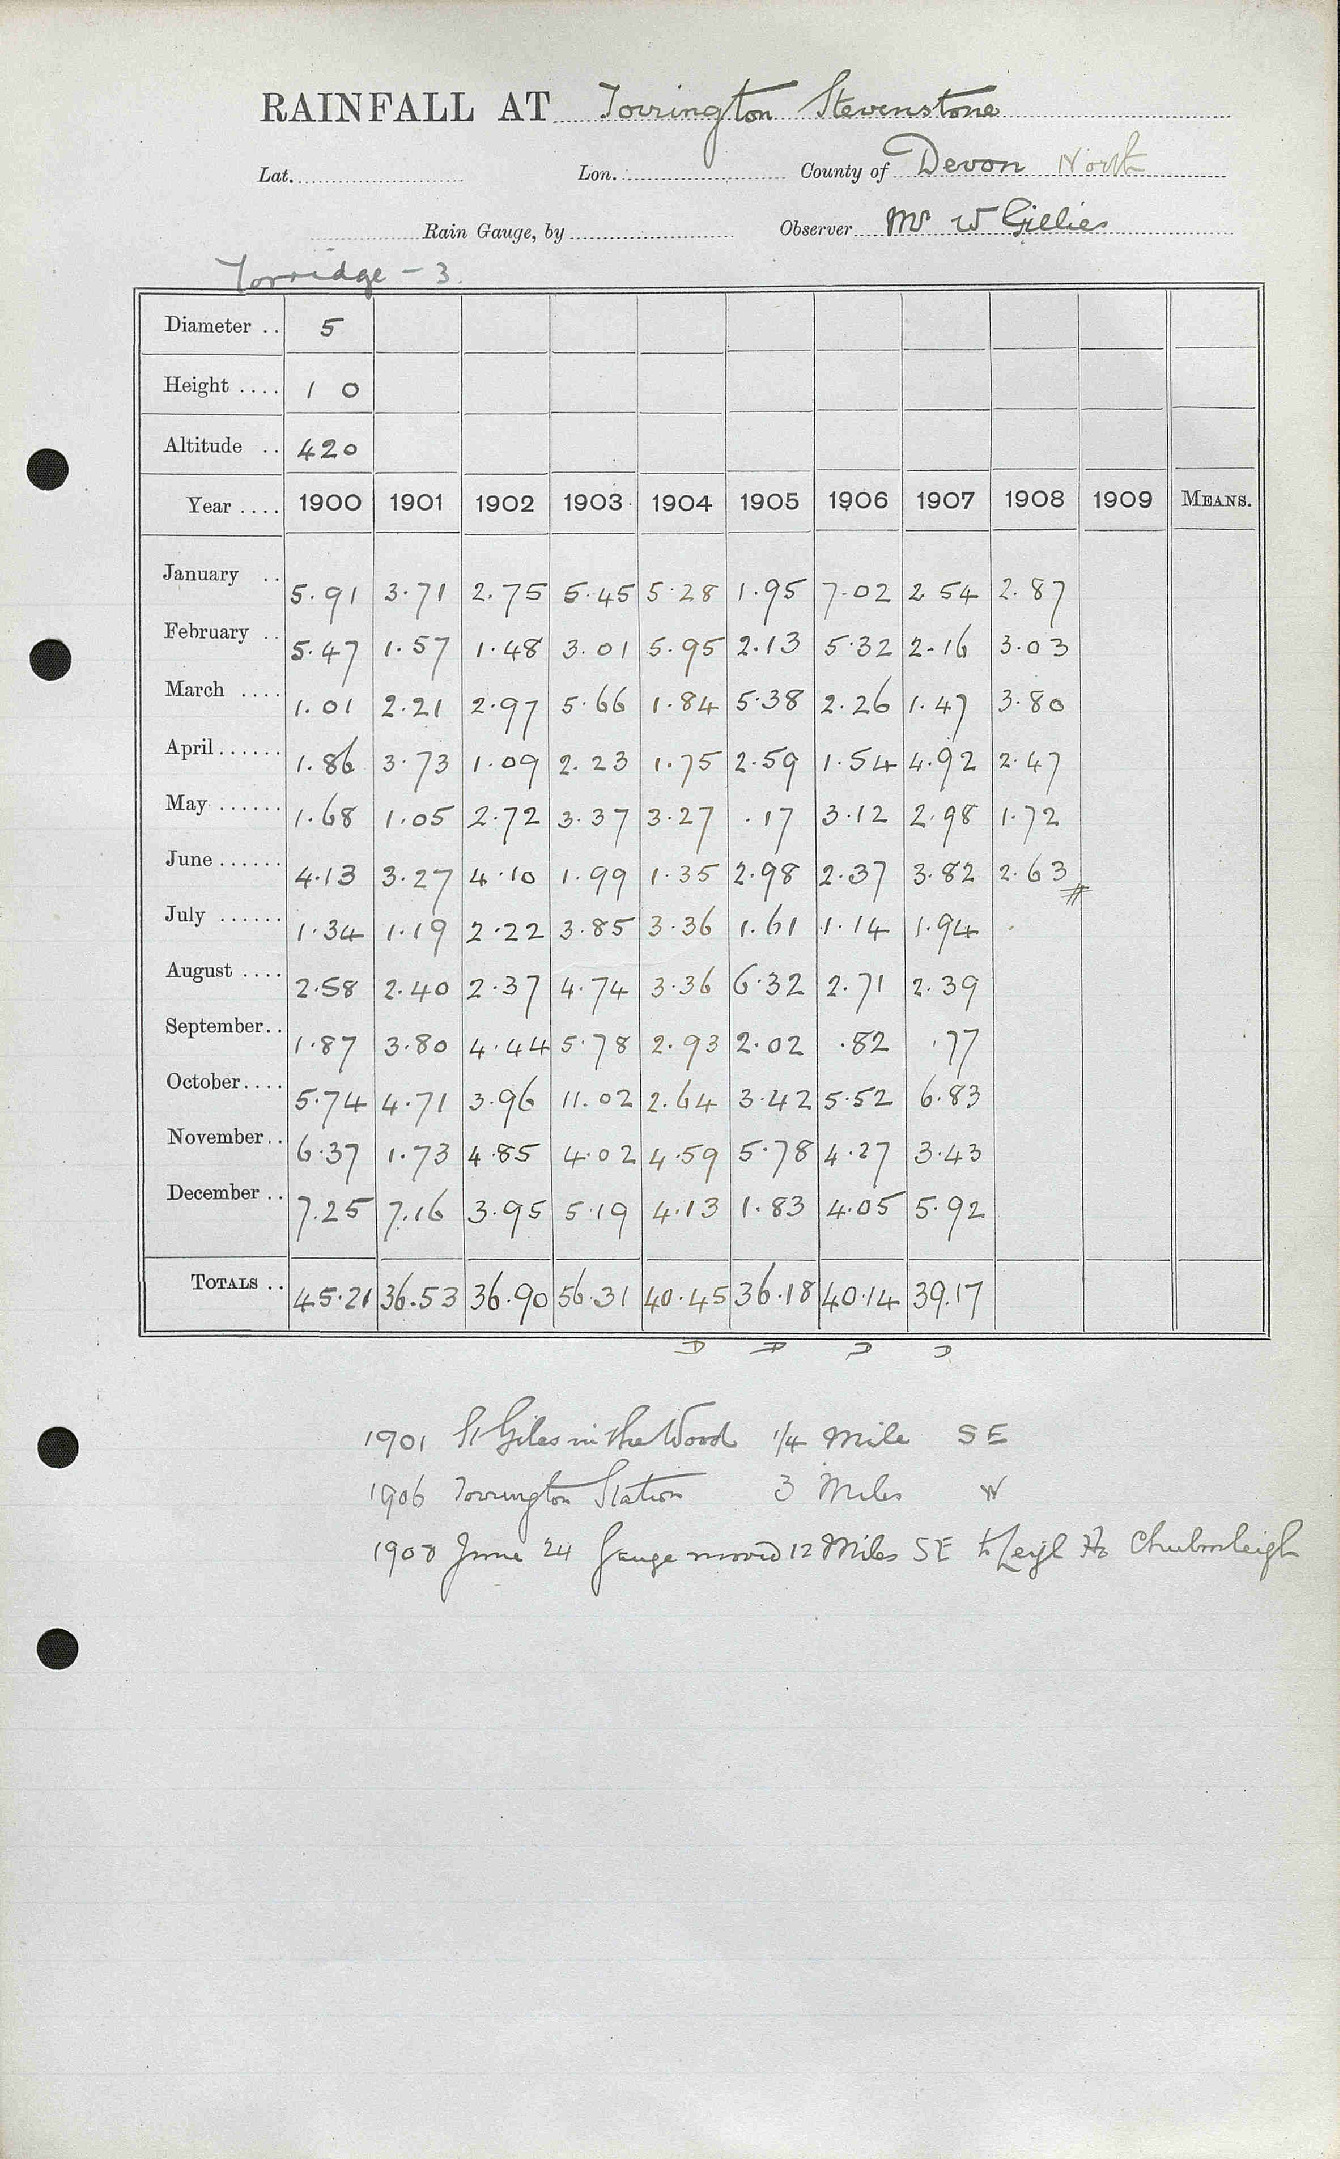 RAINFALL AT Torrington Stevenstone
Lat. Lon. County of Devon North
Rain Gauge, by Observer Mr W Gillies
Torridge - 3
Diameter .. 5
Height .... 1 0
Altitude .. 420
Year .... 1900 1901 1902 1903 1904 1905 1906 1907 1908 1909 MEANS.
January .. 5.91 3.71 2.75 5.45 5.28 1.95 7.02 2.54 2.87
February .. 5.47 1.57 1.48 3.01 5.95 2.13 5.32 2.16 3.03
March .... 1.01 2.21 2.97 5.66 1.84 5.38 2.26 1.47 3.80
April ...... 1.86 3.73 1.09 2.23 1.75 2.59 1.54 4.92 2.47
May ...... 1.68 1.05 2.72 3.37 3.27 .17 3.12 2.98 1.72
June ...... 4.13 3.27 4.10 1.99 1.35 2.98 2.37 3.82 2.63
July ...... 1.34 1.19 2.22 3.85 3.36 1.61 1.14 1.94
August .... 2.58 2.40 2.37 4.74 3.36 6.32 2.71 2.39
September.. 1.87 3.80 4.44 5.78 2.93 2.02 .82 .77
October.... 5.74 4.71 3.96 11.02 2.64 3.42 5.52 6.83
November.. 6.37 1.73 4.85 4.02 4.59 5.78 4.27 3.43
December .. 7.25 7.16 3.95 5.19 4.13 1.83 4.05 5.92
TOTALS .. 45.21 36.53 36.90 56.31 40.45 36.18 40.14 39.17
D D D D
1901 St Giles in the Wood 1/4 Mile SE
1906 Torrington Station 3 Miles W
1908 June 24 Gauge moved 12 Miles SE to Leigh Ho Chulmleigh